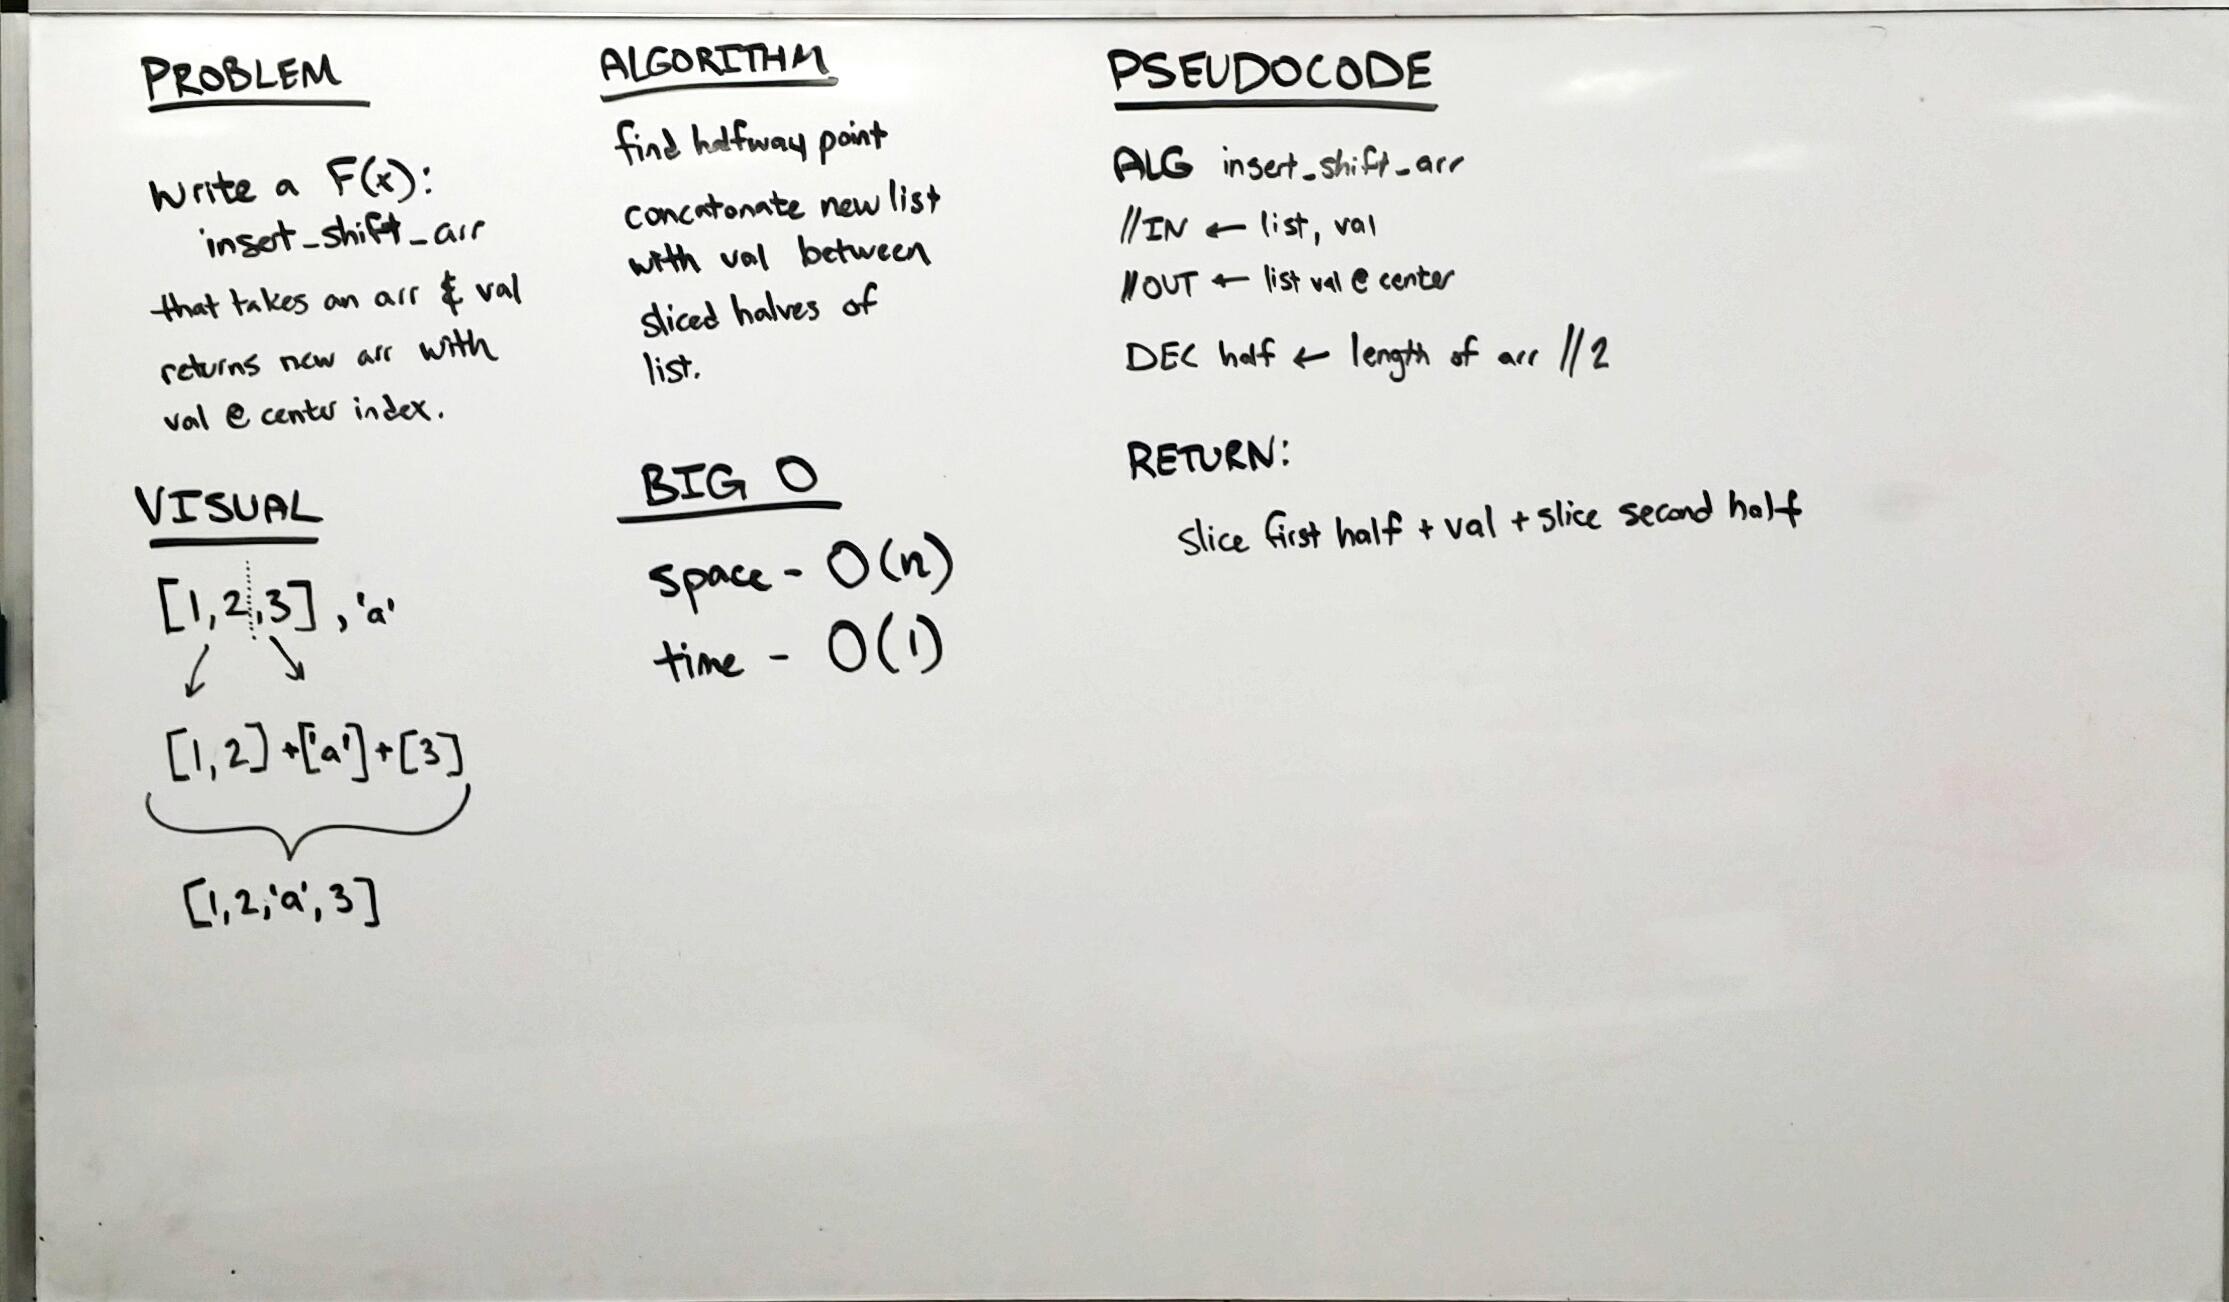 PROBLEM
Write a F(x):
insert_shift_arr
that takes an arr & val
returns new arr with
val @ center index.
VISUAL
[1,2,3], 'a'
[1,2]+['a']+[3]
[1,2,'a',3]
ALGORITHM
find halfway point
concatonate new list
with val between
sliced halves of
list.
BIG O
space - O(n)
time - O(1)
PSEUDOCODE
ALG insert_shift_arr
//IN ← list, val
//OUT ← list val @ center
DEC half ← length of arr //2
RETURN:
slice first half + val + slice second half